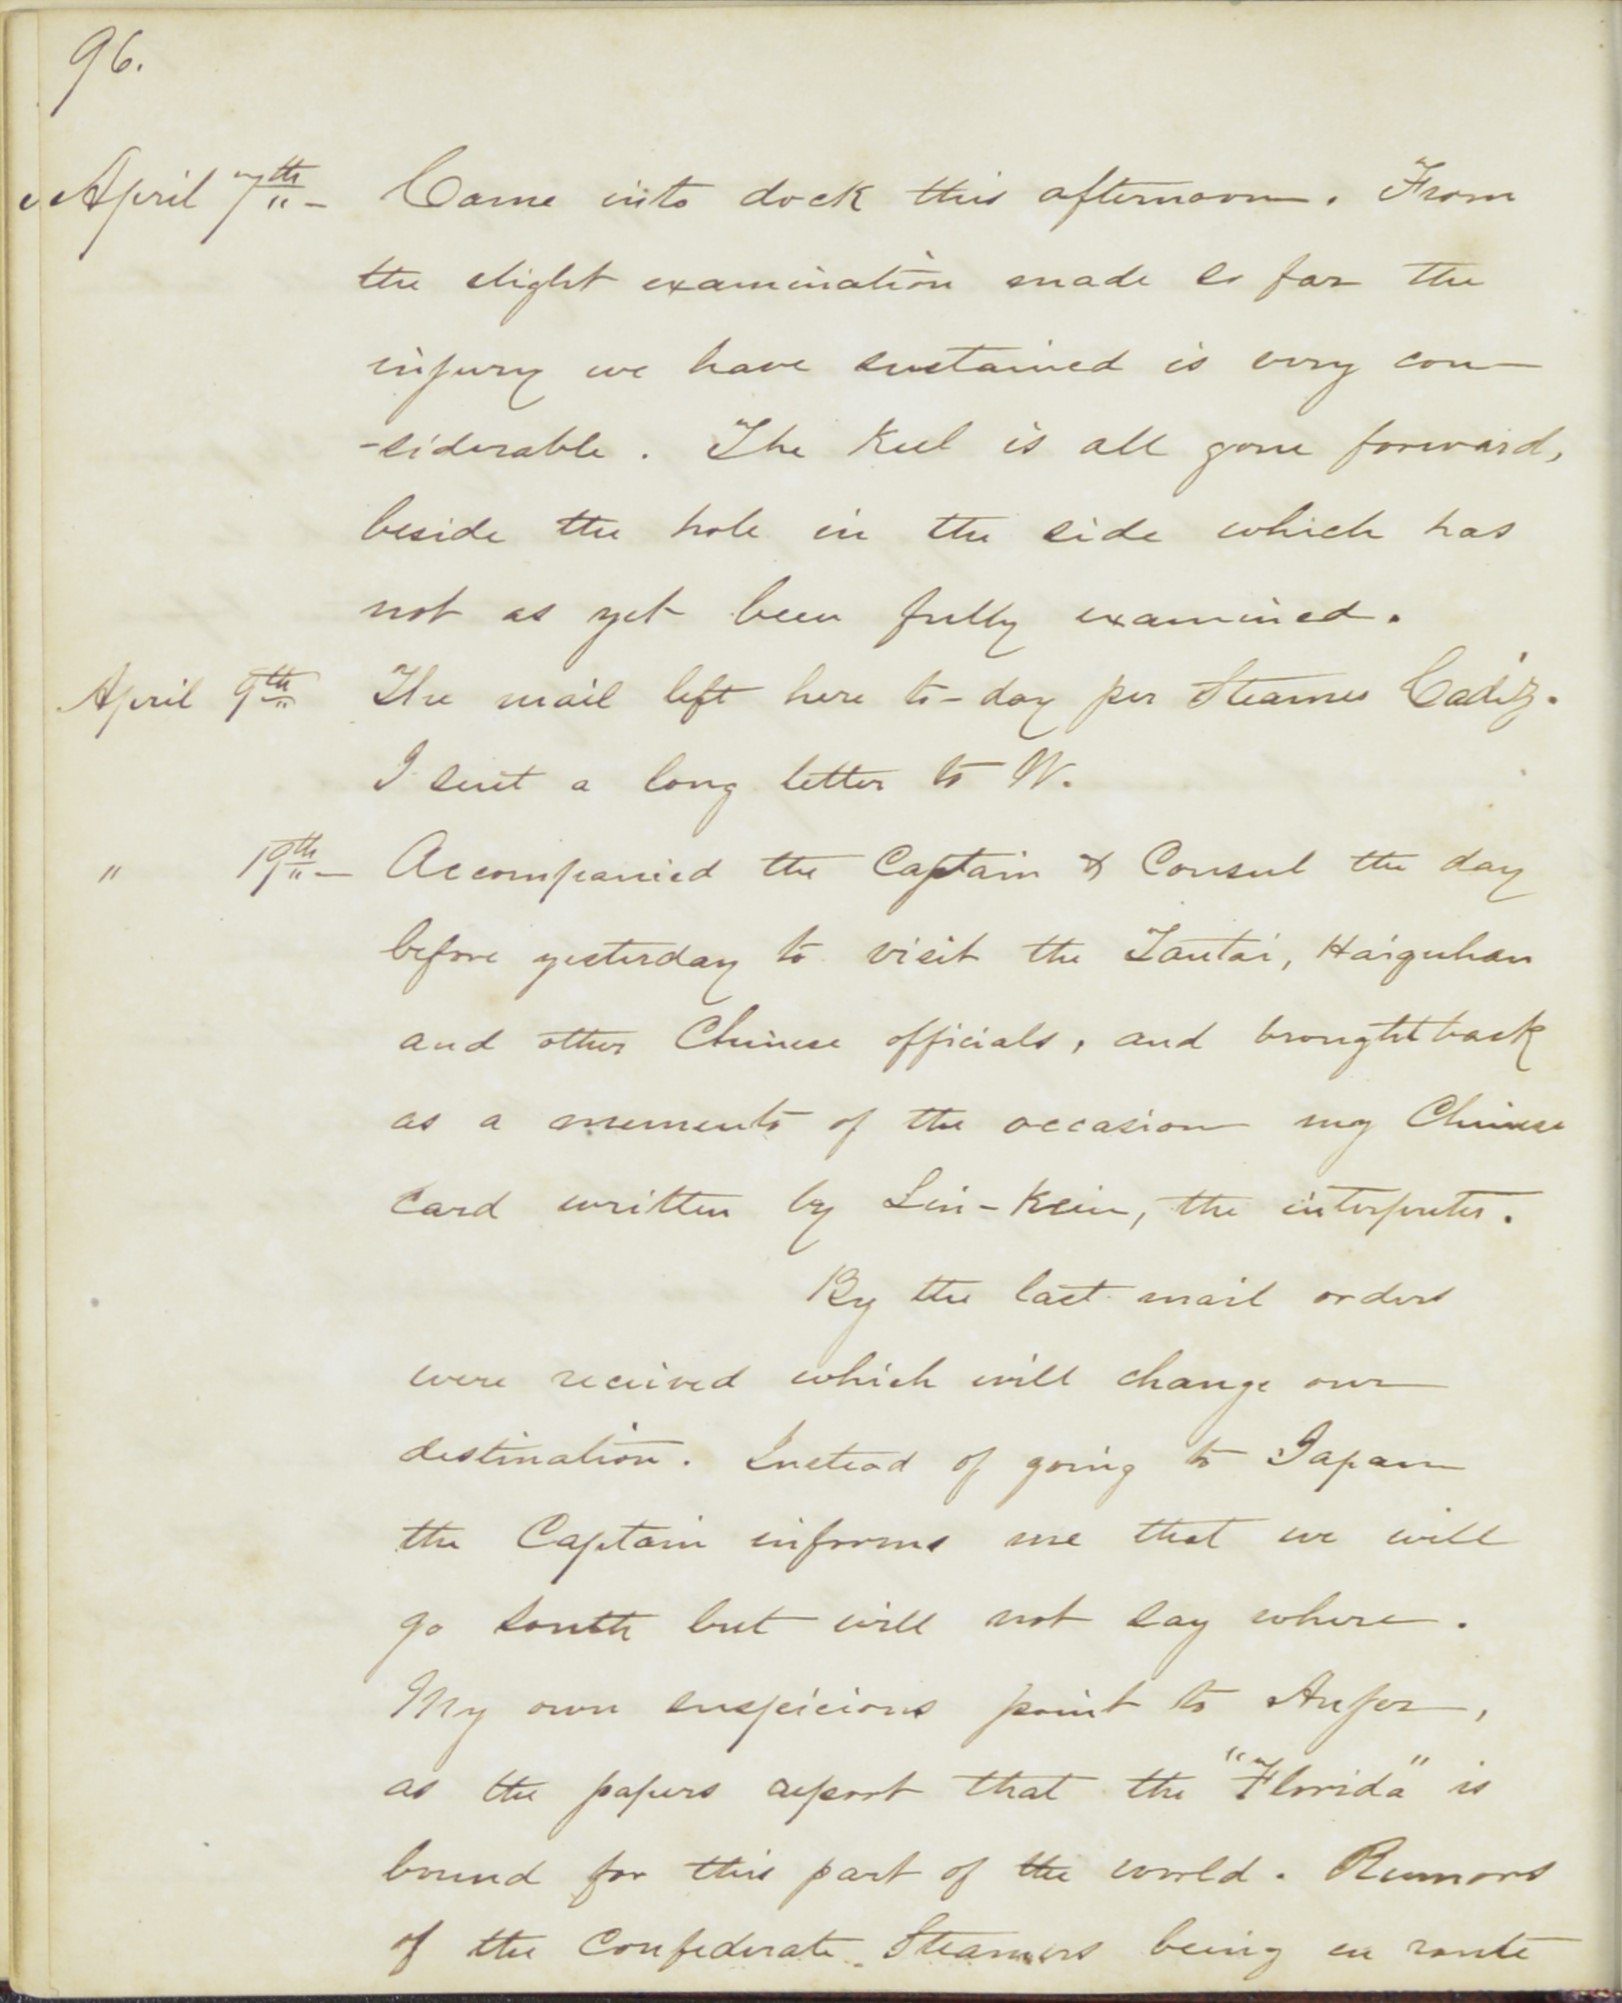 96.
April 7th — Came into dock this afternoon. From
the slight examination made so far the
injury we have sustained is very con-
-siderable. The keel is all gone forward,
beside the hole in the side which has
not as yet been fully examined.
April 9th The mail left here to-day per Steamer Cadiz.
I sent a long letter to W.
" 19th — Accompanied the Captain & Consul the day
before yesterday to visit the Tautai, Haiguhan
and other Chinese officials, and brought back
as a memento of the occasion my Chinese
card written by Lin-Kein, the interpreter.
By the last mail orders
were received which will change our
destination. Instead of going to Japan
the Captain informs me that we will
go south but will not say where.
My own suspicions point to Anjer,
as the papers report that the "Florida" is
bound for this part of the world. Rumors
of the Confederate Steamers being en route